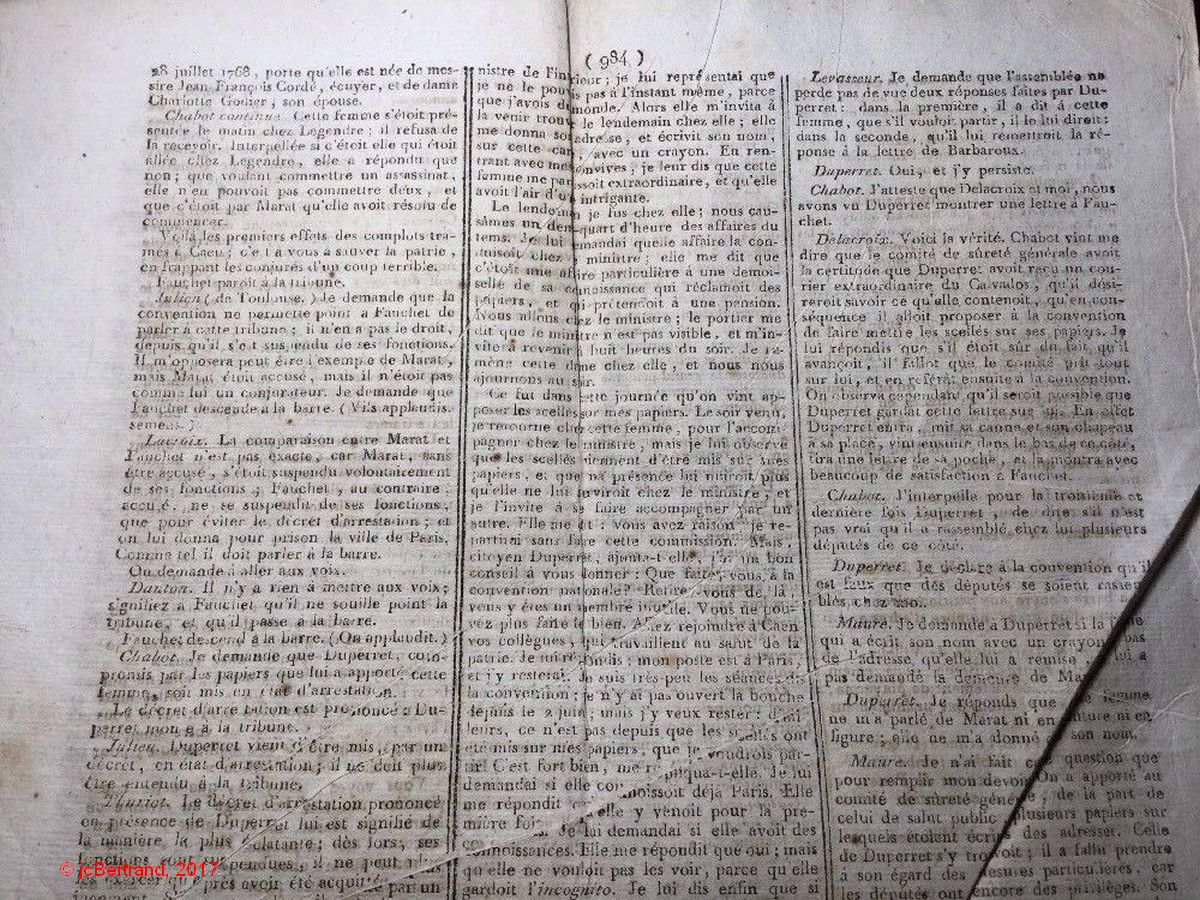 ( 984 )
28 juillet 1768, porte qu'elle est née de mes-
sire Jean-François Cordé, écuyer, et de dame
Charlotte Godier, son épouse.
Chabot continue. Cette femme s'étoit pré-
sentée le matin chez Legendre; il refusa de
la recevoir. Interpellée si c'étoit elle qui étoit
allée chez Legendre, elle a répondu que
non; que voulant commettre un assassinat,
elle n'en pouvoit pas commettre deux, et
que c'étoit par Marat qu'elle avoit résolu de
commencer.
Voilà les premiers effets des complots tra-
més à Caen; c'est à vous à sauver la patrie,
en frappant les conjurés d'un coup terrible.
Fauchet paroît à la tribune.
Julien (de Toulouse.) Je demande que la
convention ne permette point à Fauchet de
parler à cette tribune; il n'en a pas le droit,
depuis qu'il s'est suspendu de ses fonctions.
Il m'opposera peut être l'exemple de Marat,
mais Marat étoit accusé, mais il n'étoit pas
comme lui un conjurateur. Je demande que
Fauchet descende à la barre. (Vifs applaudis-
semens.)
Lacroix. La comparaison entre Marat et
Fauchet n'est pas exacte, car Marat, sans
être accusé, s'étoit suspendu volontairement
de ses fonctions; Fauchet, au contraire,
accusé, ne se suspendu de ses fonctions,
que pour éviter le décret d'arrestation; et
on lui donna pour prison la ville de Paris.
Comme tel il doit parler à la barre.
On demande à aller aux voix.
Danton. Il n'y a rien à mettre aux voix;
signifiez à Fauchet qu'il ne souille point la
tribune, et qu'il passe à la barre.
Fauchet descend à la barre. (On applaudit.)
Chabot. Je demande que Duperret, com-
promis par les papiers que lui a apporté cette
femme, soit mis en état d'arrestation.
Le décret d'arrestation est prononcé: Du-
perret monte à la tribune.
Julien. Duperret vient d'être mis, par un
décret, en état d'arrestation; il ne doit plus
être entendu à la tribune.
Thuriot. Le décret d'arrestation prononcé
en présence de Duperret lui est signifié de
la manière la plus éclatante; dès lors, ses
fonctions sont suspendues, il ne peut plus
les exercer que près avoir été acquitté par un
nistre de l'intérieur; je lui représentai que
je ne le pouvois pas à l'instant même, parce
que j'avois du monde. Alors elle m'invita à
la venir trouver le lendemain chez elle; elle
me donna son adresse, et écrivit son nom,
sur cette carte, avec un crayon. En ren-
trant avec mes convives, je leur dis que cette
femme me paroissoit extraordinaire, et qu'elle
avoit l'air d'une intrigante.
Le lendemain je fus chez elle; nous cau-
sâmes un demi-quart d'heure des affaires du
tems. Je lui demandai quelle affaire la con-
duisoit chez le ministre; elle me dit que
c'étoit une affaire particulière à une demoi-
selle de sa connoissance qui réclamoit des
papiers, et qui prétendoit à une pension.
Nous allons chez le ministre; le portier me
dit que le ministre n'est pas visible, et m'in-
vite à revenir à huit heures du soir. Je ra-
mène cette dame chez elle, et nous nous
ajournons au soir.
Ce fut dans cette journée qu'on vint ap-
poser les scellés sur mes papiers. Le soir venu,
je retourne chez cette femme, pour l'accom-
pagner chez le ministre, mais je lui observe
que les scellés viennent d'être mis sur mes
papiers, et que ma présence lui nuiroit plus
qu'elle ne lui serviroit chez le ministre, et
je l'invite à se faire accompagner par un
autre. Elle me dit: vous avez raison; je re-
partirai sans faire cette commission. Mais,
citoyen Duperret, ajouta-t-elle, j'ai un bon
conseil à vous donner: Que faites vous à la
convention nationale? Retirez-vous de là,
vous y êtes un membre inutile. Vous ne pou-
vez plus faire le bien. Allez rejoindre à Caen
vos collègues, qui travaillent au salut de la
patrie. Je lui répondis: mon poste est à Paris,
et j'y resterai. Je suis très-peu les séances de
la convention; je n'y ai pas ouvert la bouche
depuis le 2 juin; mais j'y veux rester: d'ail-
leurs, ce n'est pas depuis que les scellés ont
été mis sur mes papiers, que je voudrois par-
tir. C'est fort bien, me répliqua-t-elle. Je lui
demandai si elle connoissoit déjà Paris. Elle
me répondit qu'elle y venoit pour la pre-
mière fois. Je lui demandai si elle avoit des
connoissances. Elle me répondit que oui; mais
qu'elle ne vouloit pas les voir, parce qu'elle
gardoit l'incognito. Je lui dis enfin que si
Levasseur. Je demande que l'assemblée ne
perde pas de vue deux réponses faites par Du-
perret: dans la première, il a dit à cette
femme, que s'il vouloit partir, il le lui diroit;
dans la seconde, qu'il remettroit la ré-
ponse à la lettre de Barbaroux.
Duperret. Oui, et j'y persiste.
Chabot. J'atteste que Delacroix et moi, nous
avons vu Duperret montrer une lettre à Fau-
chet.
Delacroix. Voici la vérité. Chabot vint me
dire que le comité de sûreté générale avoit
la certitude que Duperret avoit reçu un cou-
rier extraordinaire du Calvados, qu'il dési-
reroit savoir ce qu'elle contenoit, qu'en con-
séquence il alloit proposer à la convention
de faire mettre les scellés sur ses papiers. Je
lui répondis que s'il étoit sûr du fait qu'il
avançoit, il falloit que le comité prît tout
sur lui, et en référât ensuite à la convention.
On observa cependant qu'il seroit possible que
Duperret gardât cette lettre sur lui. En effet
Duperret entra, mit sa canne et son chapeau
à sa place, vint ensuite dans le bas de ce côté,
tira une lettre de sa poche, et la montra avec
beaucoup de satisfaction à Fauchet.
Chabot. J'interpelle pour la troisième et
dernière fois Duperret, de dire s'il n'est
pas vrai qu'il a rassemblé chez lui plusieurs
députés de ce côté.
Duperret. Je déclare à la convention qu'il
est faux que des députés se soient rassem-
blés chez moi.
Maure. Je demande à Duperret si la femme
qui a écrit son nom avec un crayon bas
de l'adresse, qu'elle lui a remise, lui a
pas demandé la demeure de Marat
Duperret. Je réponds que femme
ne m'a parlé de Marat ni en ni en
figure; elle ne m'a donné son nom.
Maure. Je n'ai fait cette question que
pour remplir mon devoir. On a apporté au
comité de sûreté générale, de la part de
celui de salut public plusieurs papiers sur
lesquels étoient écrites des adresses. Celle
de Duperret s'y trouvoit; il a fallu prendre
à son égard des mesures particulières, car
les députés ont encore des privilèges. Son
© jcBertrand, 2017